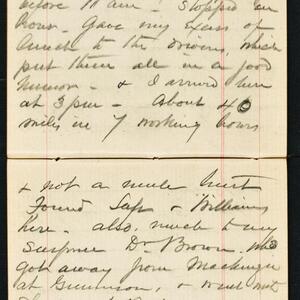 before 11 am! Stopped an
hour. Gave my Excess of
lunch to the drivers, which
put them all in a good
humor - & I arrived here
at 3 pm - About 40
miles in 7 working hours
& not a mule hurt
Found & Williams
here - also, much to my
surprise Dr Brown, who
got away from Mackenzie
at Gunnison, & went not